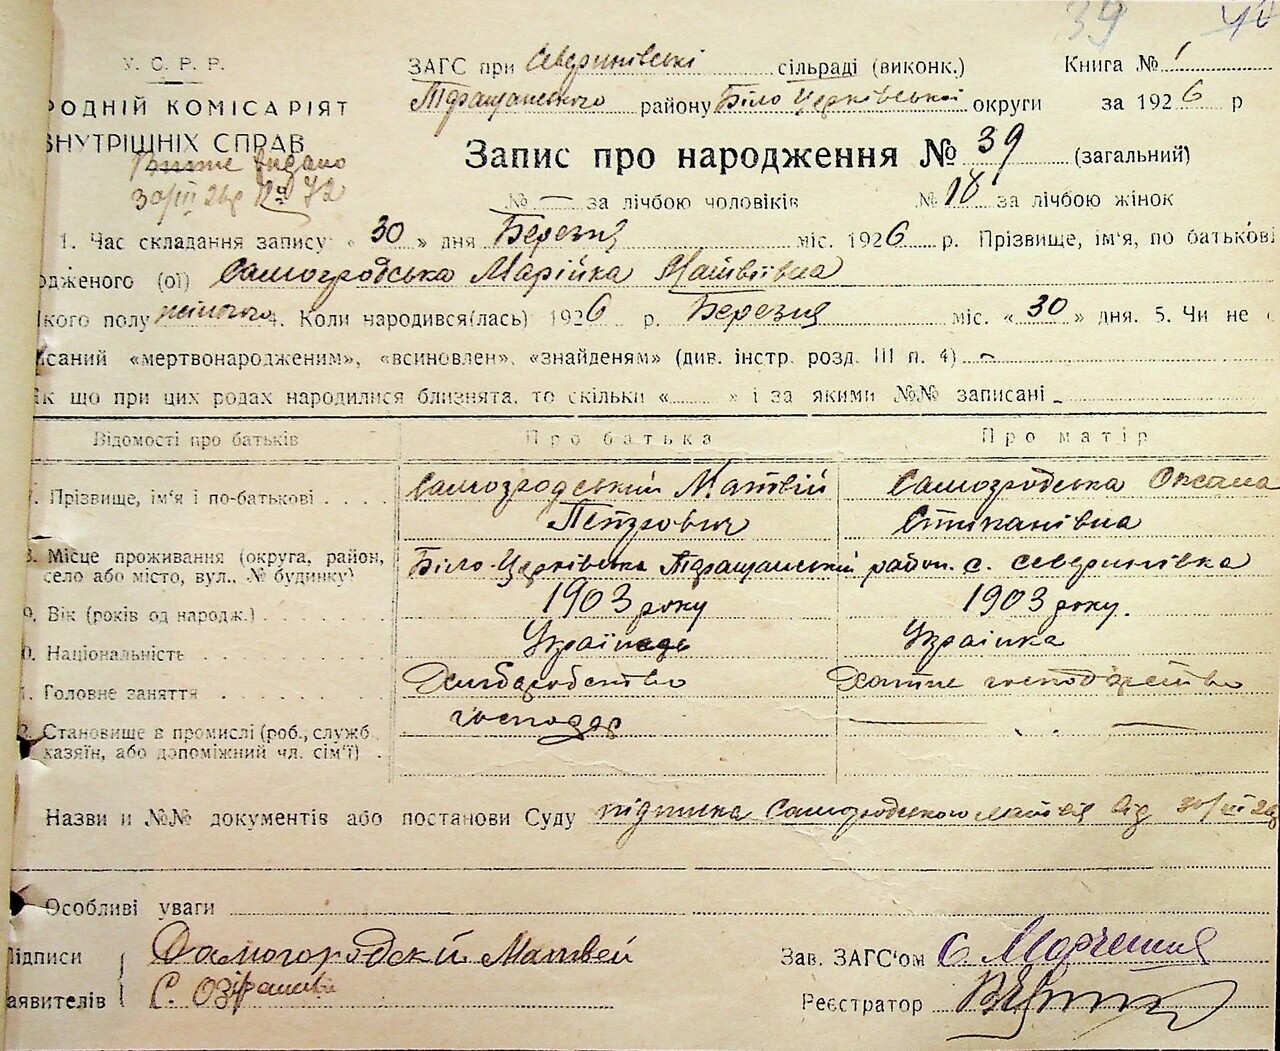 39
У. С. Р. Р.
РОДНІЙ КОМІСАРІЯТ
ВНУТРІШНІХ СПРАВ
видано
30/III 26р № 72
ЗАГС при Северинівські сільраді (виконк.) Книга № 1
Підращанського району Біло Церківської округи за 1926 р
Запис про народження № 39 (загальний)
№ — за лічбою чоловіків № 18 за лічбою жінок
1. Час складання запису «30» дня Березня міс. 1926 р. Прізвище, ім'я, по батькові
одженого (ої) Самогродська Марійка Матвіївна
кого полу жіночого 4. Коли народився(лась) 1926 р. Березня міс. «30» дня. 5. Чи не
исаний «мертвонародженим», «всиновлен», «знайденям» (див. інстр. розд. III п. 4) —
Як що при цих родах народилися близнята, то скільки « » і за якими №№ записані
Відомості про батьків Про батька Про матір
7. Прізвище, ім'я і по-батькові . . . . Самогродський Матвій Самогродська Оксана
Петрович Степанівна
8. Місце проживання (округа, район, село або місто, вул., № будинку) Біло-Церківська Підращанський район. с. Северинівка
9. Вік (років од народж.) . . . . 1903 року 1903 року.
0. Національність . . . . Українець Українка
1. Головне заняття . . . . Хліборобство Хатнє господарство
господар
2. Становище в промислі (роб., служб. хазяїн, або допоміжний чл. сім'ї) . —
Назви и №№ документів або постанови Суду підписка Самогродського Матвія від 30/III 26р
Особливі уваги
Підписи Самогородскй Матвей Зав. ЗАГС'ом
заявителів С. Реєстратор